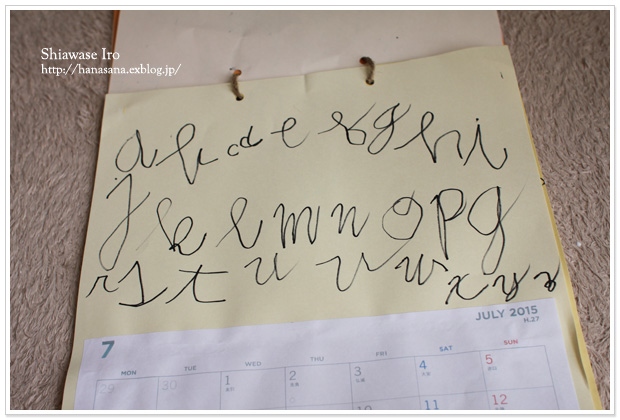 Shiawase Iro
http://hanasana.exblog.jp/
a b c d e f g h i
j k l m n o p q
r s t u v w x y z
7
JULY 2015
H.27
MON TUE WED THU FRI SAT SUN
29 30 1 2 3 4 5
10 11 12